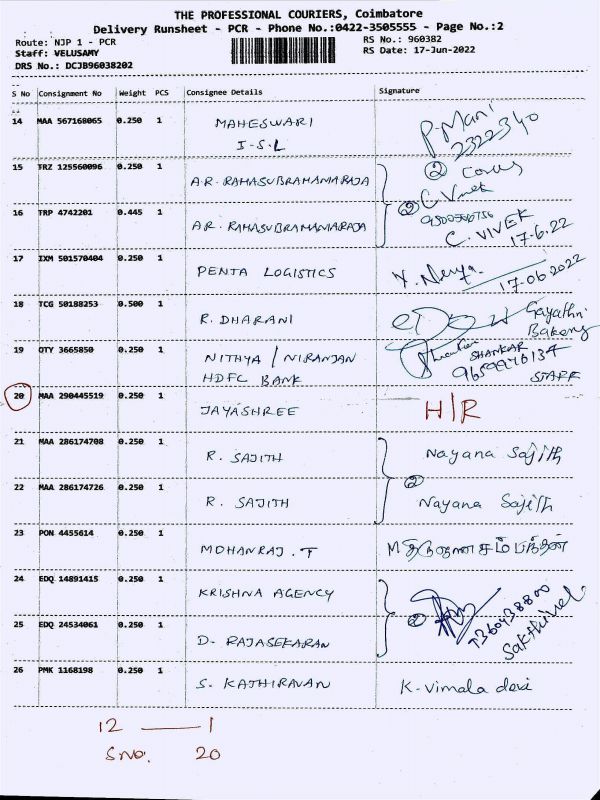 THE PROFESSIONAL COURIERS, Coimbatore
Delivery Runsheet - PCR - Phone No.:0422-3505555 - Page No.:2
Route: NJP 1 - PCR RS No.: 960382
Staff: VELUSAMY RS Date: 17-Jun-2022
DRS No.: DCJB96038202
S No Consignment No Weight PCS Consignee Details Signature
14 MAA 567168065 0.250 1 MAHESWARI P. Mani
I-S.L 2322340
15 TRZ 125560096 0.250 1 A.R. RAMASUBRAMAMARAJA ②
C. Vivek
16 TRP 4742201 0.445 1 A.R. RAMASUBRAMAMARAJA C. VIVEK
17.6.22
17 IXM 501570404 0.250 1 PENTA LOGISTICS
17-06-2022
18 TCG 50188253 0.500 1 R. DHARANI Gayathri
Bakery
19 OTY 3665850 0.250 1 NITHYA / NIRANJAN SHANKAR
HDFC BANK 9659976134
STAFF
20 MAA 290445519 0.250 1 JAYASHREE H/R
21 MAA 286174708 0.250 1 R. SAJITH Nayana Sajith
②
22 MAA 286174726 0.250 1 R. SAJITH Nayana Sajith
23 PON 4455614 0.250 1 MOHANRAJ . T M திருஞானசம்பந்தன்
24 EDQ 14891415 0.250 1 KRISHNA AGENCY
② 7360438800
25 EDQ 24534061 0.250 1 D. RAJASEKARAN Sakthivel
26 PMK 1168198 0.250 1 S. KATHIRAVAN K. Vimala devi
12 — 1
S no. 20